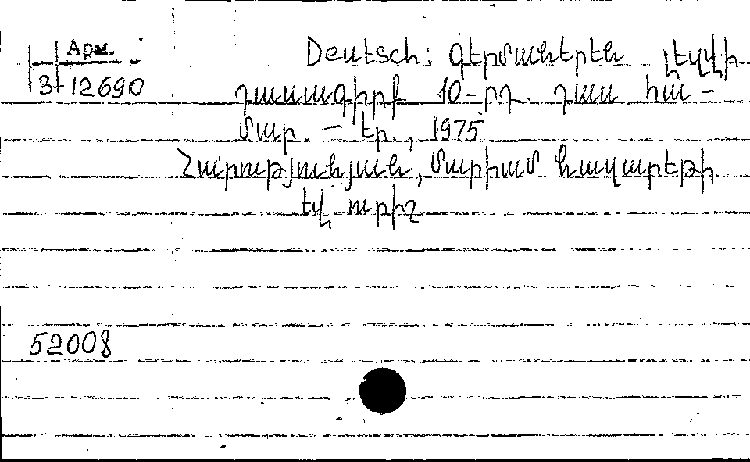 Арм.
3-12690
Deutsch: Գերմաներեն լեզվի
դասագիրք 10-րդ. դաս հա-
մար. — Եր., 1975
Հարությունյան, Մարիամ Նազարեթի
եվ ուրիշ
52008